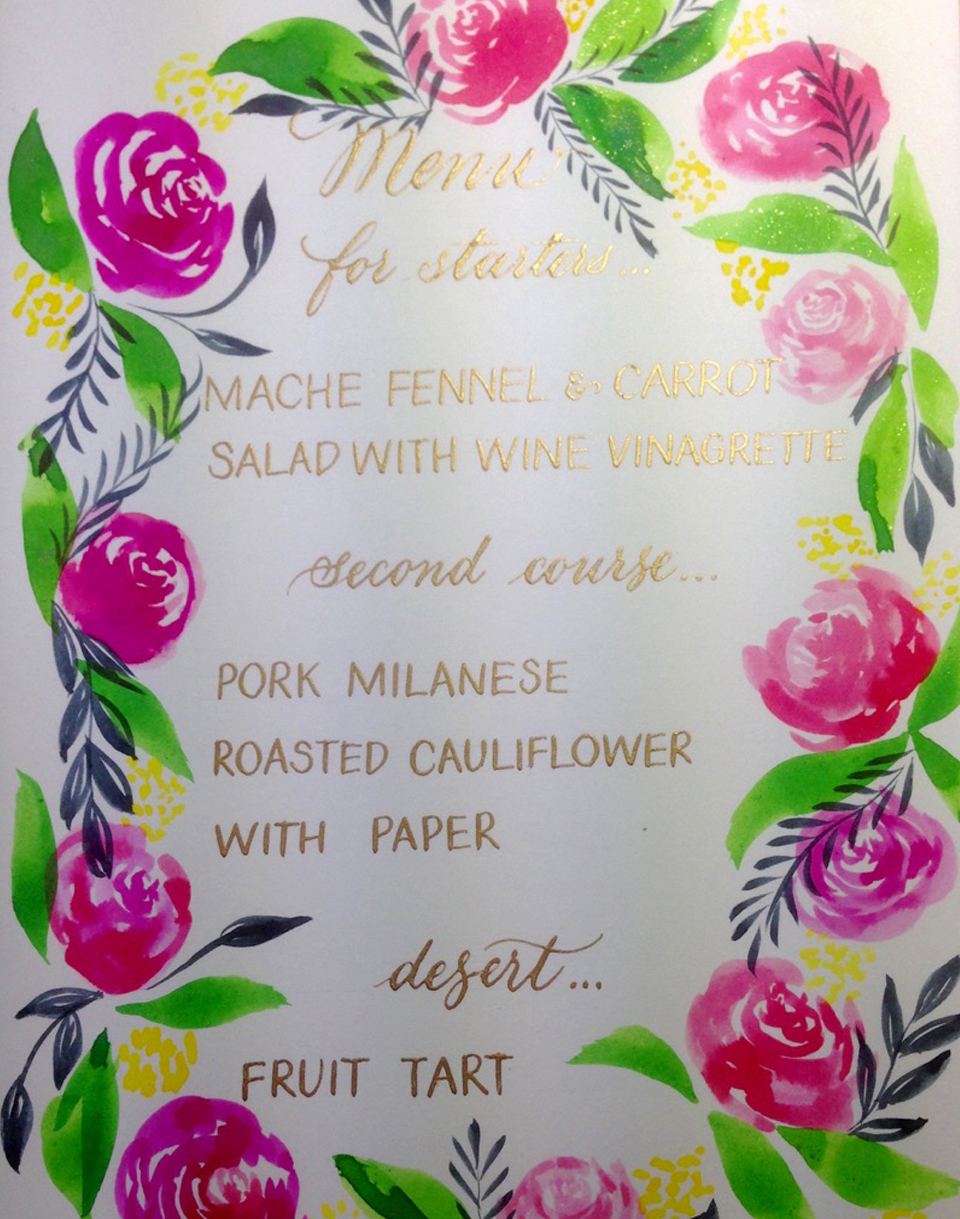 Menu
for starters...
MACHE FENNEL & CARROT
SALAD WITH WINE VINAGRETTE
second course...
PORK MILANESE
ROASTED CAULIFLOWER
WITH PAPER
desert...
FRUIT TART